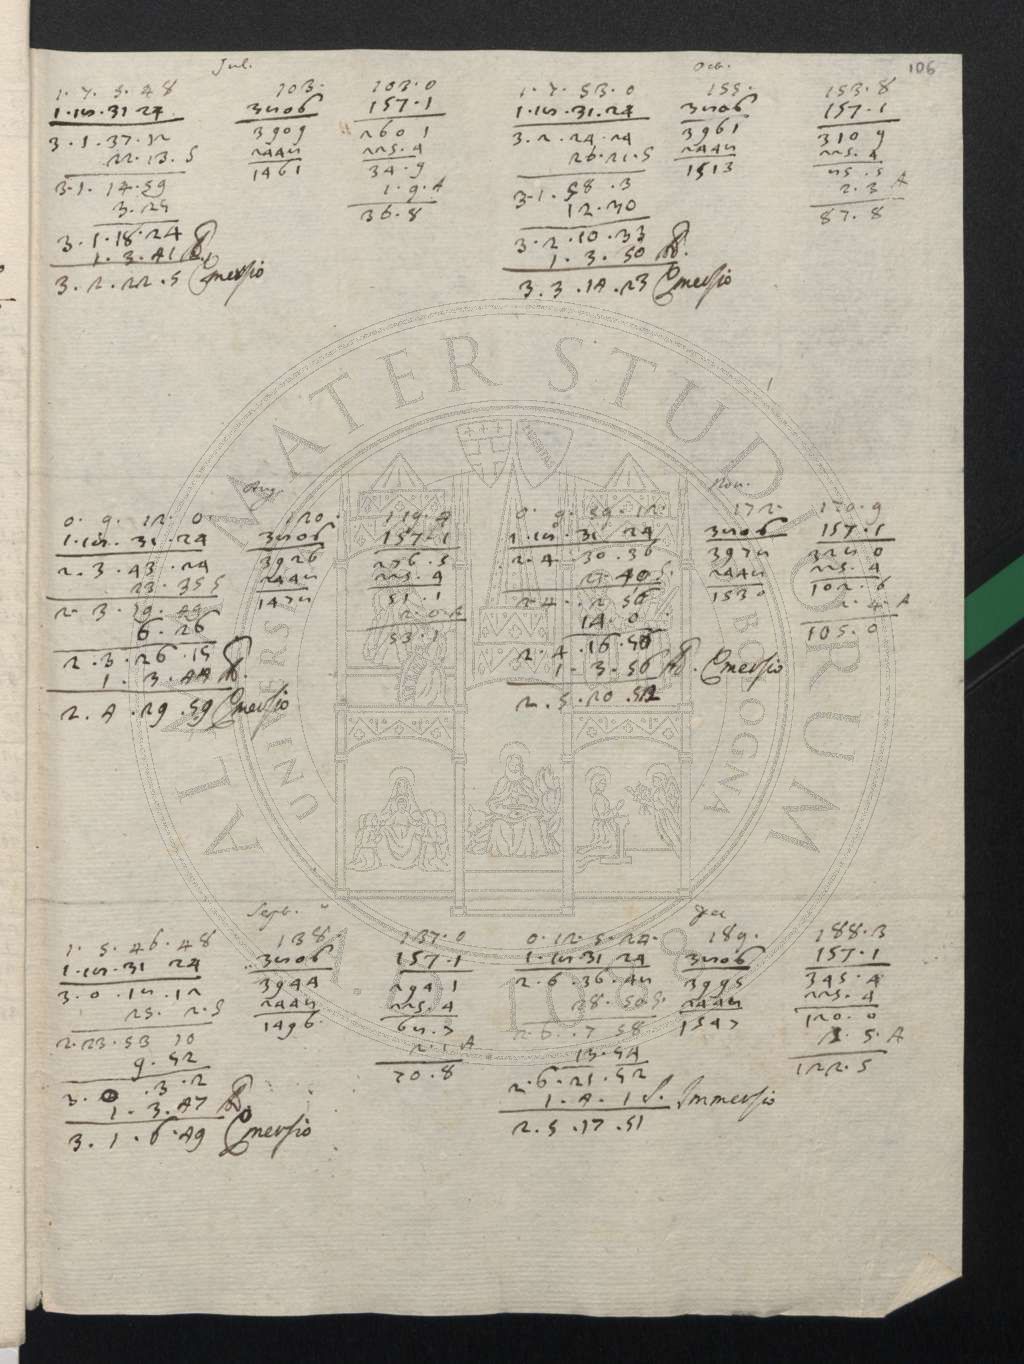 106
Jul.
1. 7. 5. 48
1. 18. 31 24
3. 1. 37. 12
22. 13. S
3. 1. 14. 59
3. 25
3. 1. 18. 24
1. 3. 41 A.
3. 2. 22. 5 Emersio
103.
3806
3909
2448
1461
103. 0
157. 1
260 1
225. 4
34. 9
1. 9. A
36. 8
Oct.
1. 7. 53. 0
1. 18. 31. 24
3. 2. 24. 24
26. 21. S
3. 1. 58. 3
12. 30
3. 2. 10. 33
1. 3. 50 A.
3. 3. 14. 23 Emersio
155.
3806
3961
2448
1513
153. 8
157. 1
310 9
225. 4
85. 5
2. 3 A
87. 8
Aug.
0. 9. 12. 0
1. 18. 31. 24
2. 3. 43. 24
23. 35 S
2. 3. 19. 49
6. 26
2. 3. 26. 15
1. 3. 44 A.
2. 4. 29. 59 Emersio
120.
3806
3926
2448
1478
119. 4
157. 1
276. 5
225. 4
51. 1
2. 0. A
53. 1
Nov.
0. 9. 59. 12.
1. 18. 31 24
2. 4. 30. 36
27. 40 S.
2. 4. 2. 56
14. 0
2. 4. 16. 56
1. 3. 56 A. Emersio
2. 5. 20. 52
172.
3806
3978
2448
1530
170. 9
157. 1
328 0
225. 4
102. 6
2. 4. A
105. 0
Sept.
1. 5. 46. 48
1. 18. 31 24
3. 0. 18. 12
25. 2. S
2. 23. 53 10
9. 52
3. 0. 3. 2
1. 3. 47 A.
3. 1. 6. 49 Emersio
138.
3806
3944
2448
1496
137. 0
157. 1
294 1
225. 4
68. 7
2. 1 A
70. 8
Dec
0. 12. 5. 24.
1. 18. 31 24
2. 6. 36. 48
28. 50 S.
2. 6. 7 58
13. 54
2. 6. 21. 52
1. 4. 1 S. Immersio
2. 5. 17. 51
189.
3806
3995
2448
1547
188. 3
157. 1
345. 4
225. 4
120. 0
2. 5. A
122. 5
ALMA MATER STUDIORUM
UNIVERSITÀ DI BOLOGNA
A.D. 1088